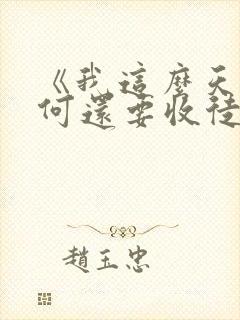 《我這麼天
何還要收徒
趙玉忠